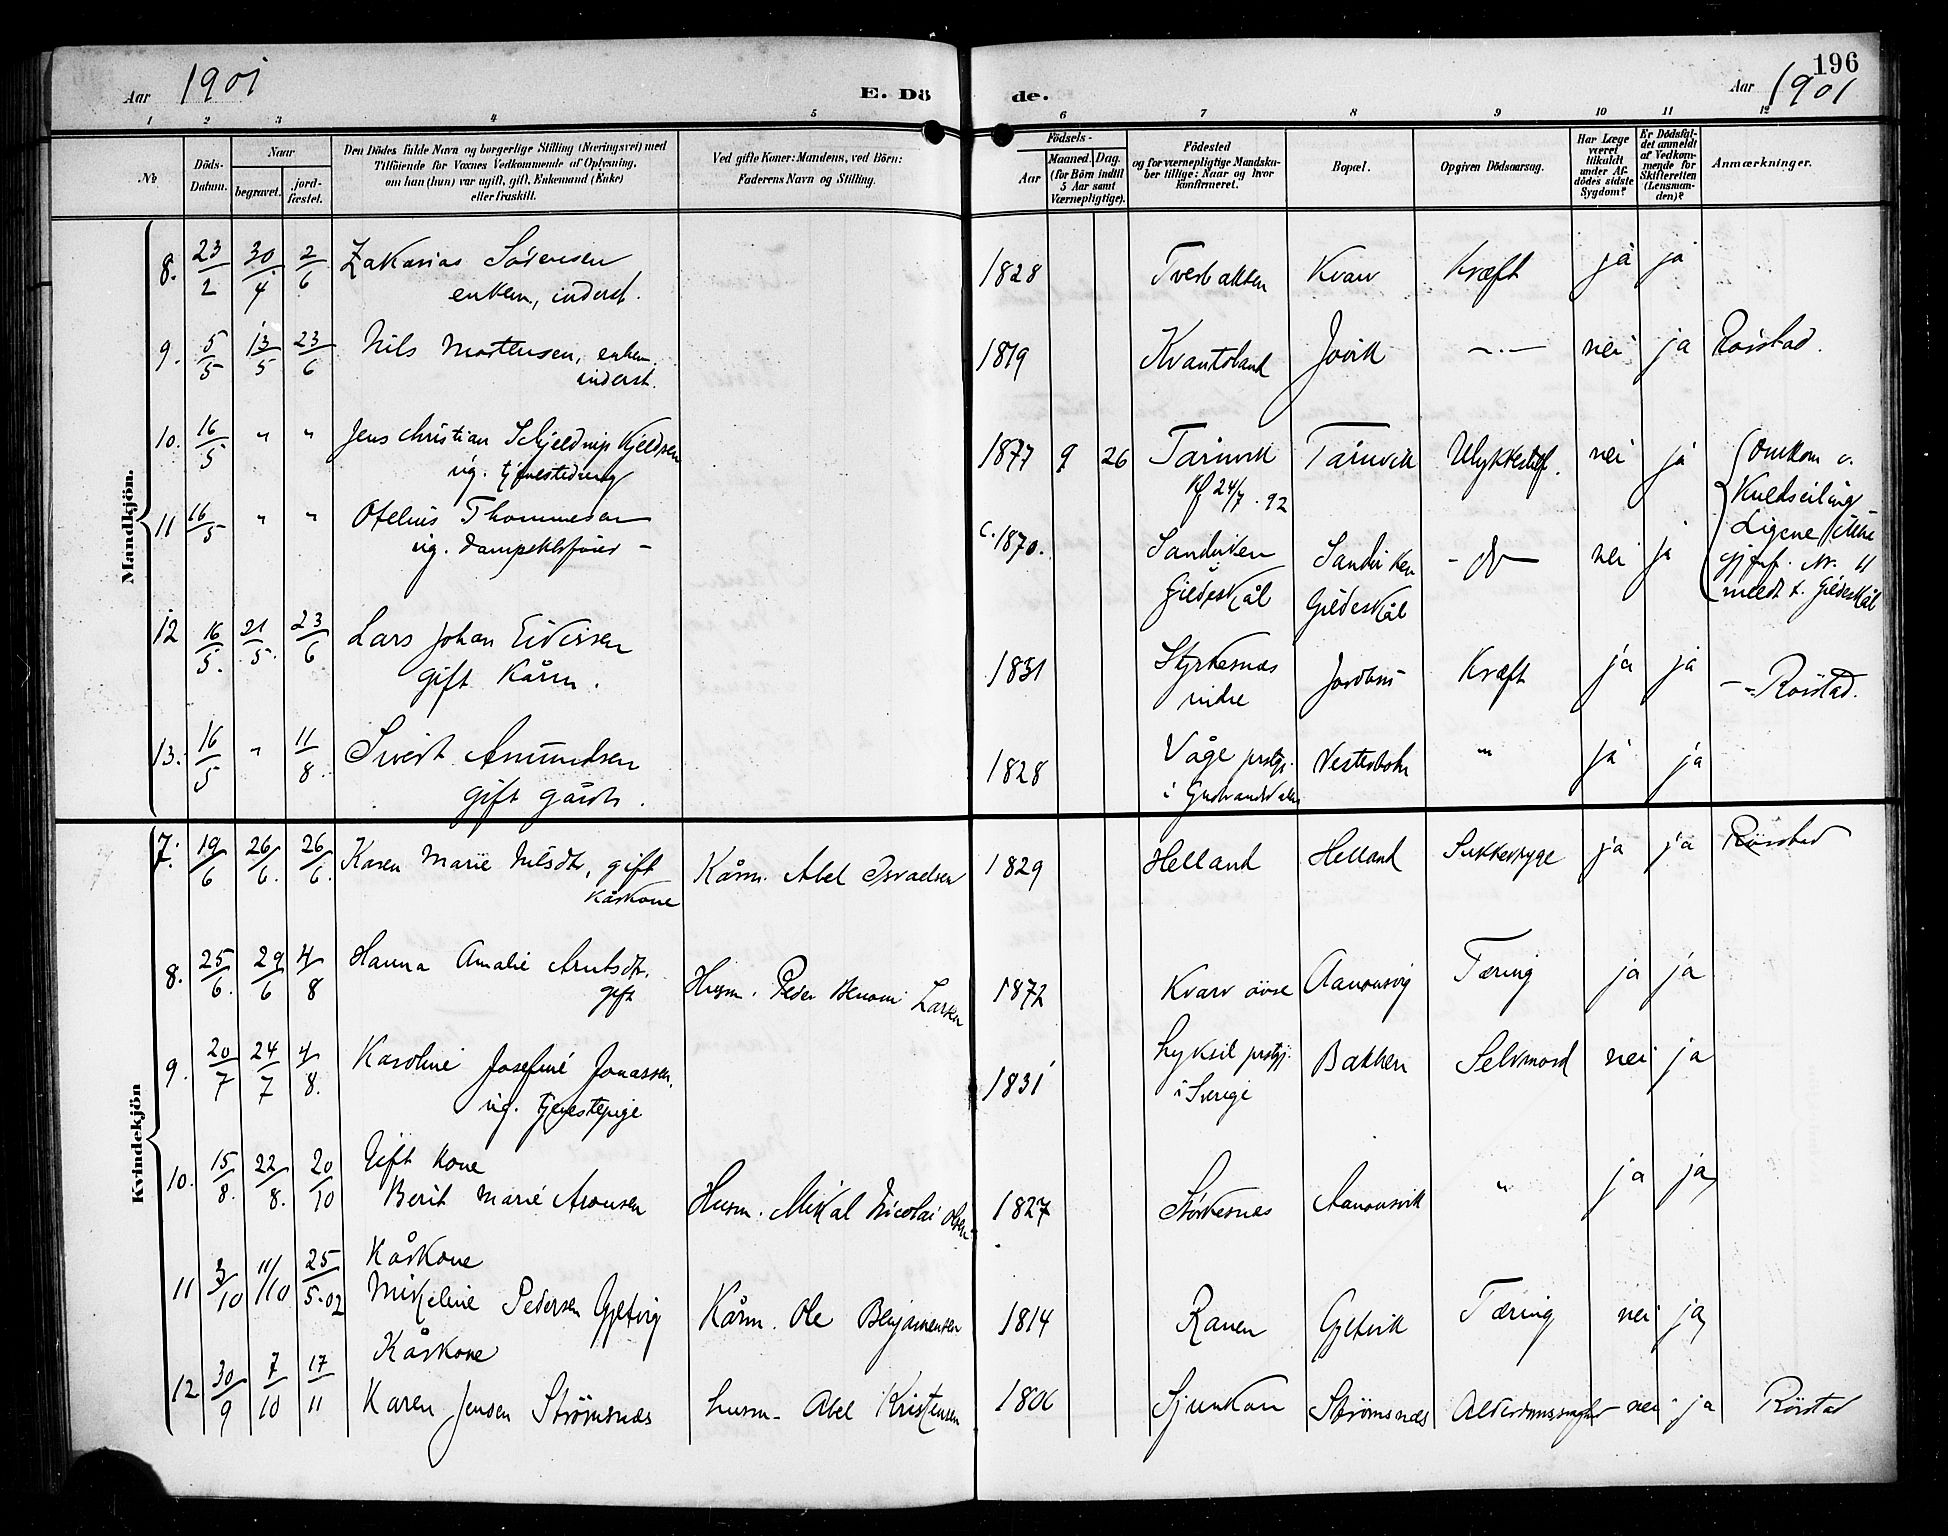 196
Aar 1901
E. Dö
de.
Aar 1901
1 2 3 4 5 6 7 8 9 10 11 12
No
Döds-Datum.
Naar
begravet.
jord-fæstet.
Den Dödes fulde Navn og borgerlige Stilling (Næringsvei) med
Tilföiende for Voxnes Vedkommende af Oplysning,
om han (hun) var ugift, gift, Enkemand (Enke)
eller fraskilt.
Ved gifte Koner: Mandens, ved Börn:
Faderens Navn og Stilling.
Födsels-
Aar
Maaned.
Dag.
(for Börn indtil
5 Aar samt
Værnepligtige).
Födested
og for værnepligtige Mandskaber tillige: Naar og hvor
konfirmeret.
Bopæl.
Opgiven Dödsaarsag.
Har Læge
været
tilkaldt
under Afdödes sidste
Sygdom?
Er Dödsfaldet anmeldt
af Vedkommende for
Skifteretten
(Lensmanden)?
Anmærkninger.
Mandkjön.
8. 23/2 30/4 2/6 Zakarias Sörensen 1828 Kvarv Kræft ja ja
enkem, inderst.
9. 5/5 13/5 23/6 Nils Mortensen, enkem. 1819 Kvantoland Jövik -"- nei ja Rörstad.
inderst.
10. 16/5 " " Jens Christian Schjeldrup Kjeldsen 1877 9 26 Tårnvik Tårnvik Ulykkestilf. nei ja Omkom v.
ug. Kf 24/7 . 92 Kuldseiling
11 16/5 " " Otelius Thommesen c. 1870. Sandviken Gildeskål Sandviken Gildeskål -do- nei ja Ligene ikke
ug. gjenf. Nr. 11
meldt t. Gildeskål
12 16/5. 21/5. 23/6 Lars Johan Eidissen 1831 Styrkesnes indre Kræft ja ja -"- Rörstad.
gift Kårm.
13. 16/5 " 11/8. Sivert Amundsen 1828 Våge prstgj. i Gudbrandsdalen " ja ja
gift gårdb.
Kvindekjön
7. 19/6 26/6. 26/6. Karen Marie Nilsdtr, gift Kårm. Abel Israelsen 1829 Helland Helland Sukkersyge ja ja Rörstad
Kårkone
8. 25/6. 29/6 4/8 Hanna Amalie Arntsdtr. Husm. Peder Benoni Larsen 1872 Kvarv övre Aanonsvig Tæring ja ja
gift
9. 20/7 24/7 4/8. Karoline Josefine Jonassen, 1831 Lyksele prstgj. i Sverige Bakken Selvmord nei ja
ug. tjenestepige
10. 15/8. 22/8. 20/10 Gift kone
Berit Marie Aronsen Husm. Mikal Nicolai Olsen 1827 Störkesnes Aanonsvik " ja ja
11 3/10 11/10 25/5.02 Kårkone
Mikeline Pedersen Gyltvig Kårm. Ole Benjaminsen 1814 Ranen Gyltvik Tæring nei ja
12 30/9 7/10 17/11 Kårkone
Karen Jensen Strömsnes husm. Abel Kristensen 1806 Sjunkan Strömsnes Alderdomssvaghed nei ja Rörstad